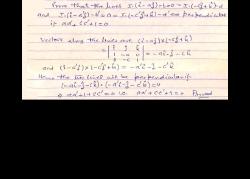 Prove that the lines r.(i - aj) - b = 0 = r.(
and r.(i - a'j) - b' = 0 = r.(-c'j + k) - d' are perpendicular
if aa' + cc' + 1 = 0
Vectors along the lines are (i - aj) × (-cj + k)
= | i j k |
| 1 -a 0 | = -ai - j - ck
| 0 -c 1 |
and (i - a'j) × (-c'j + k) = -a'i - j - c'k
Hence the two lines will be perpendicular if
(-ai - j - ck) . (-a'i - j - c'k) = 0
⇒ aa' + 1 + cc' = 0 i.e. aa' + cc' + 1 = 0 Proved